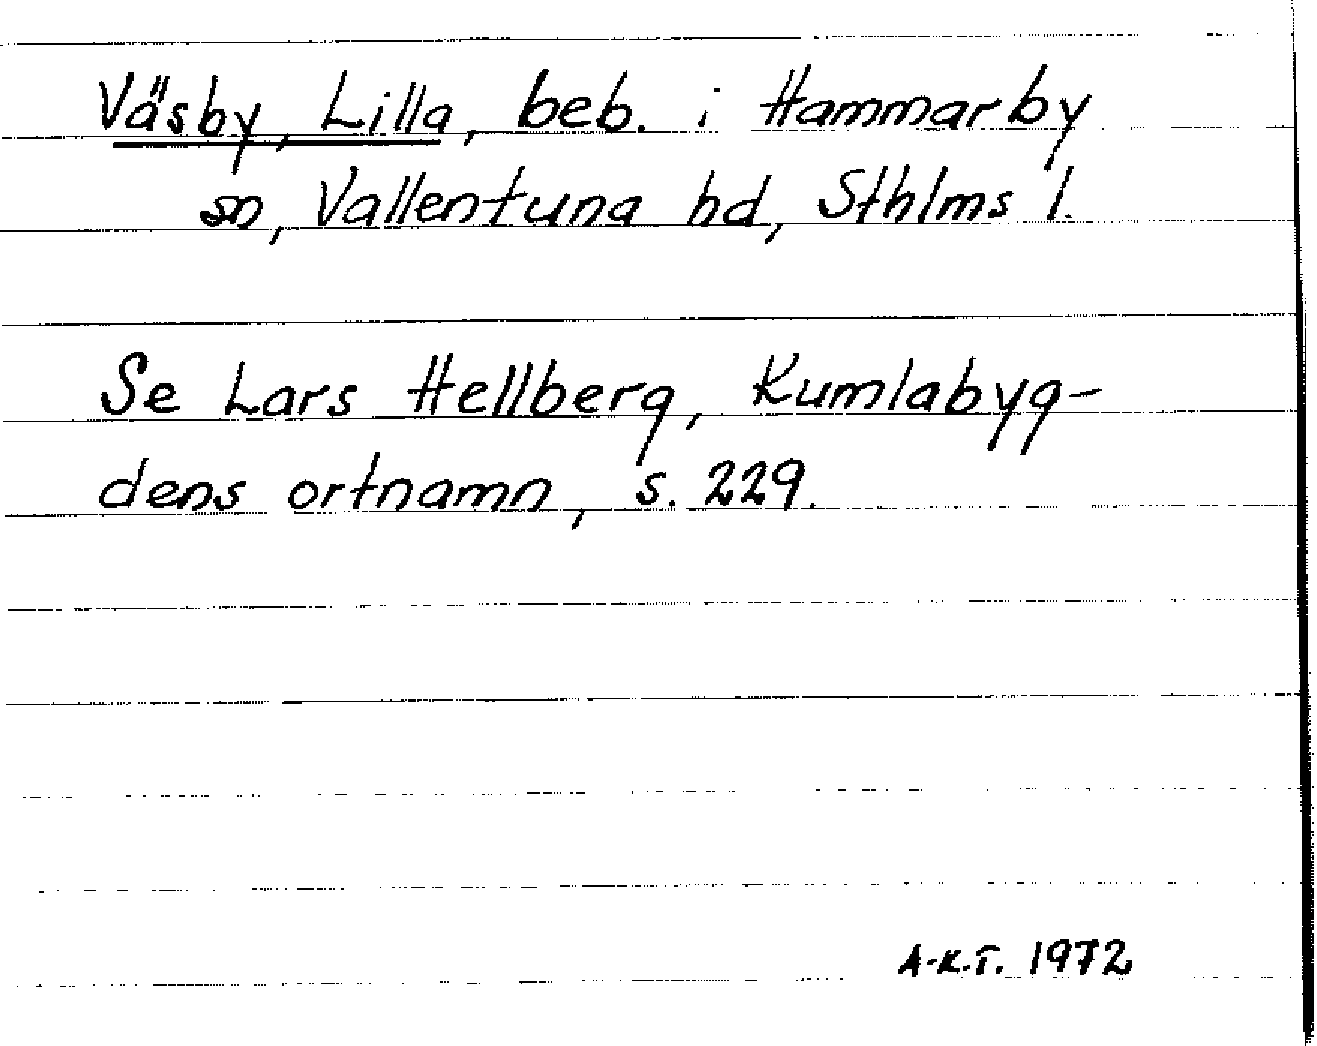 Väsby, Lilla, beb. i Hammarby
sn, Vallentuna hd, Sthlms l.
Se Lars Hellberg, Kumlabyg-
dens ortnamn, s. 229.
A-K.T. 1972